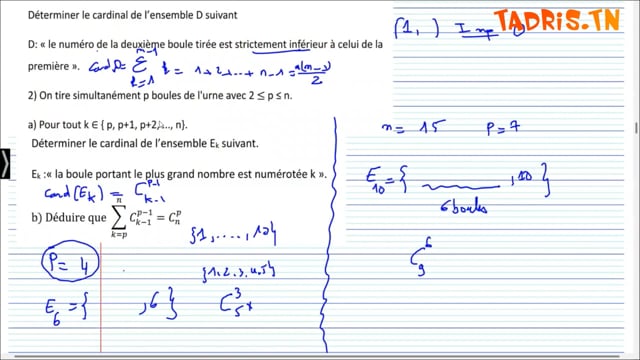 Déterminer le cardinal de l'ensemble D suivant
TADRIS.TN
(1, ) Imp
D: « le numéro de la deuxième boule tirée est strictement inférieur à celui de la
première ». card D = n-1 Σ k=1 k = 1+2+...+n-1 = n(n-1)/2
2) On tire simultanément p boules de l'urne avec 2 ≤ p ≤ n.
a) Pour tout k ∈ { p, p+1, p+2,.., n}.
Déterminer le cardinal de l'ensemble Eₖ suivant.
Eₖ :« la boule portant le plus grand nombre est numérotée k ».
card(Eₖ) = C p-1 k-1
b) Déduire que n Σ k=p C p-1 k-1 = C p n
{1, ...., 10}
P = 4
{1,2,3,4,5}
E₆ = { , 6 } C 3 5 ×
n = 15 p = 7
E₁₀ = { , 10 }
6 boules
C 6 9